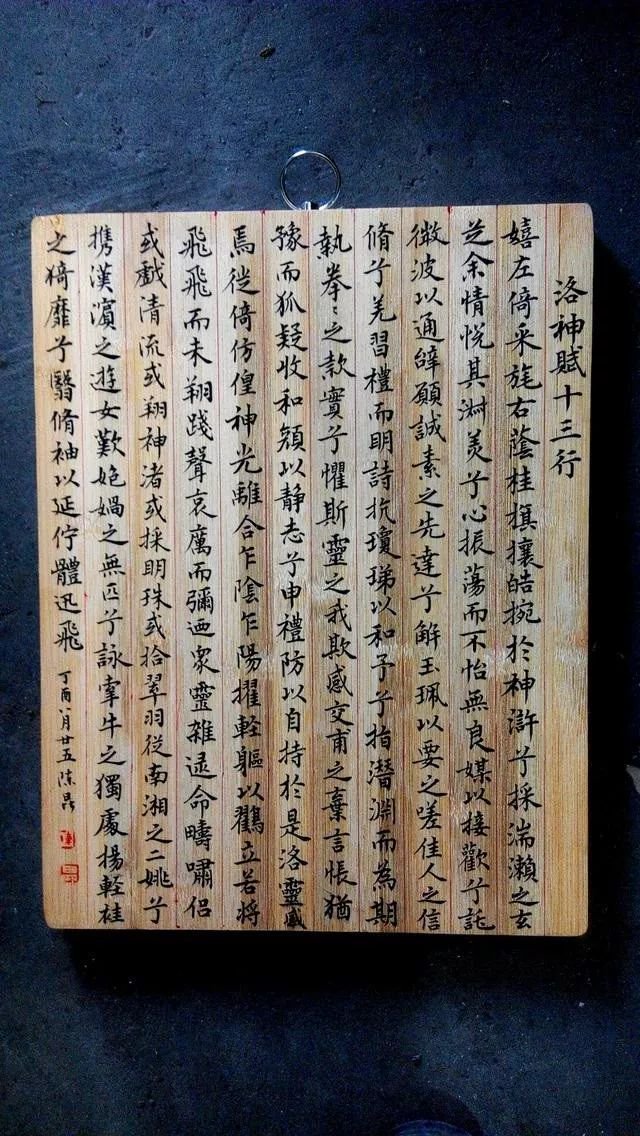 洛神賦十三行
嬉左倚采旄右蔭桂旗攘皓捥於神滸兮採湍瀨之玄
芝余情悦其淋美兮心振蕩而不怡無良媒以接歡兮託
微波以通辝願誠素之先達兮解玉珮以要之嗟佳人之信
脩兮羌習禮而明詩抗瓊珶以和予兮指潛淵而為期
執拳〻之款實兮懼斯靈之我欺感交甫之棄言悵猶
豫而狐疑收和顏以静志兮申禮防以自持於是洛靈感
焉徙倚仿偟神光離合乍陰乍陽擢輕軀以鶴立若將
飛飛而未翔踐聲哀厲而彌迊衆靈雜遝命疇嘯侣
或戲清流或翔神渚或採明珠或拾翠羽從南湘之二姚兮
攜漢濱之遊女歎媊媧之無匹兮詠牽牛之獨處揚輕袿
之猗靡兮翳脩袖以延佇體迅飛
丁酉八月廿五陈晨